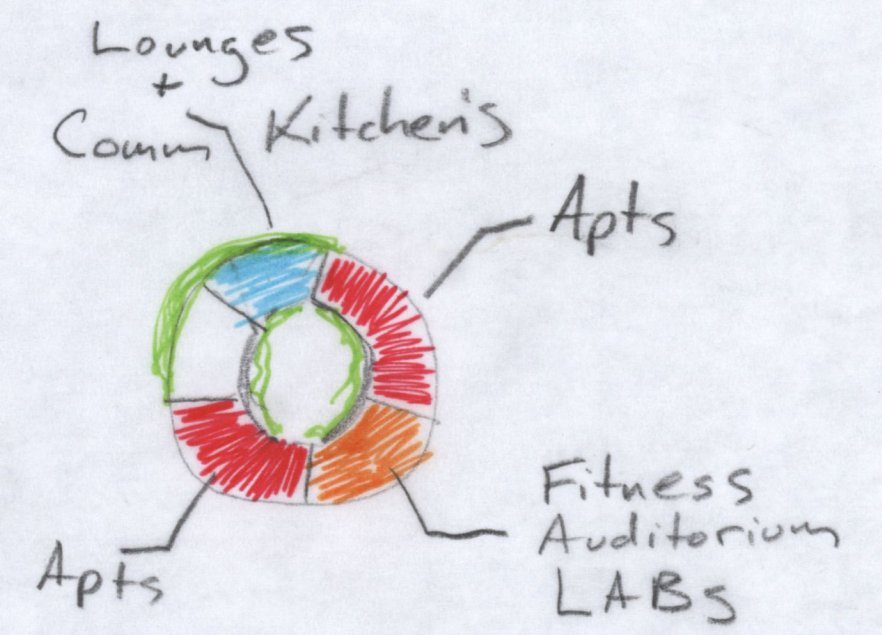 Lounges
+
Comm Kitchen's
Apts
Fitness
Auditorium
LABs
Apts